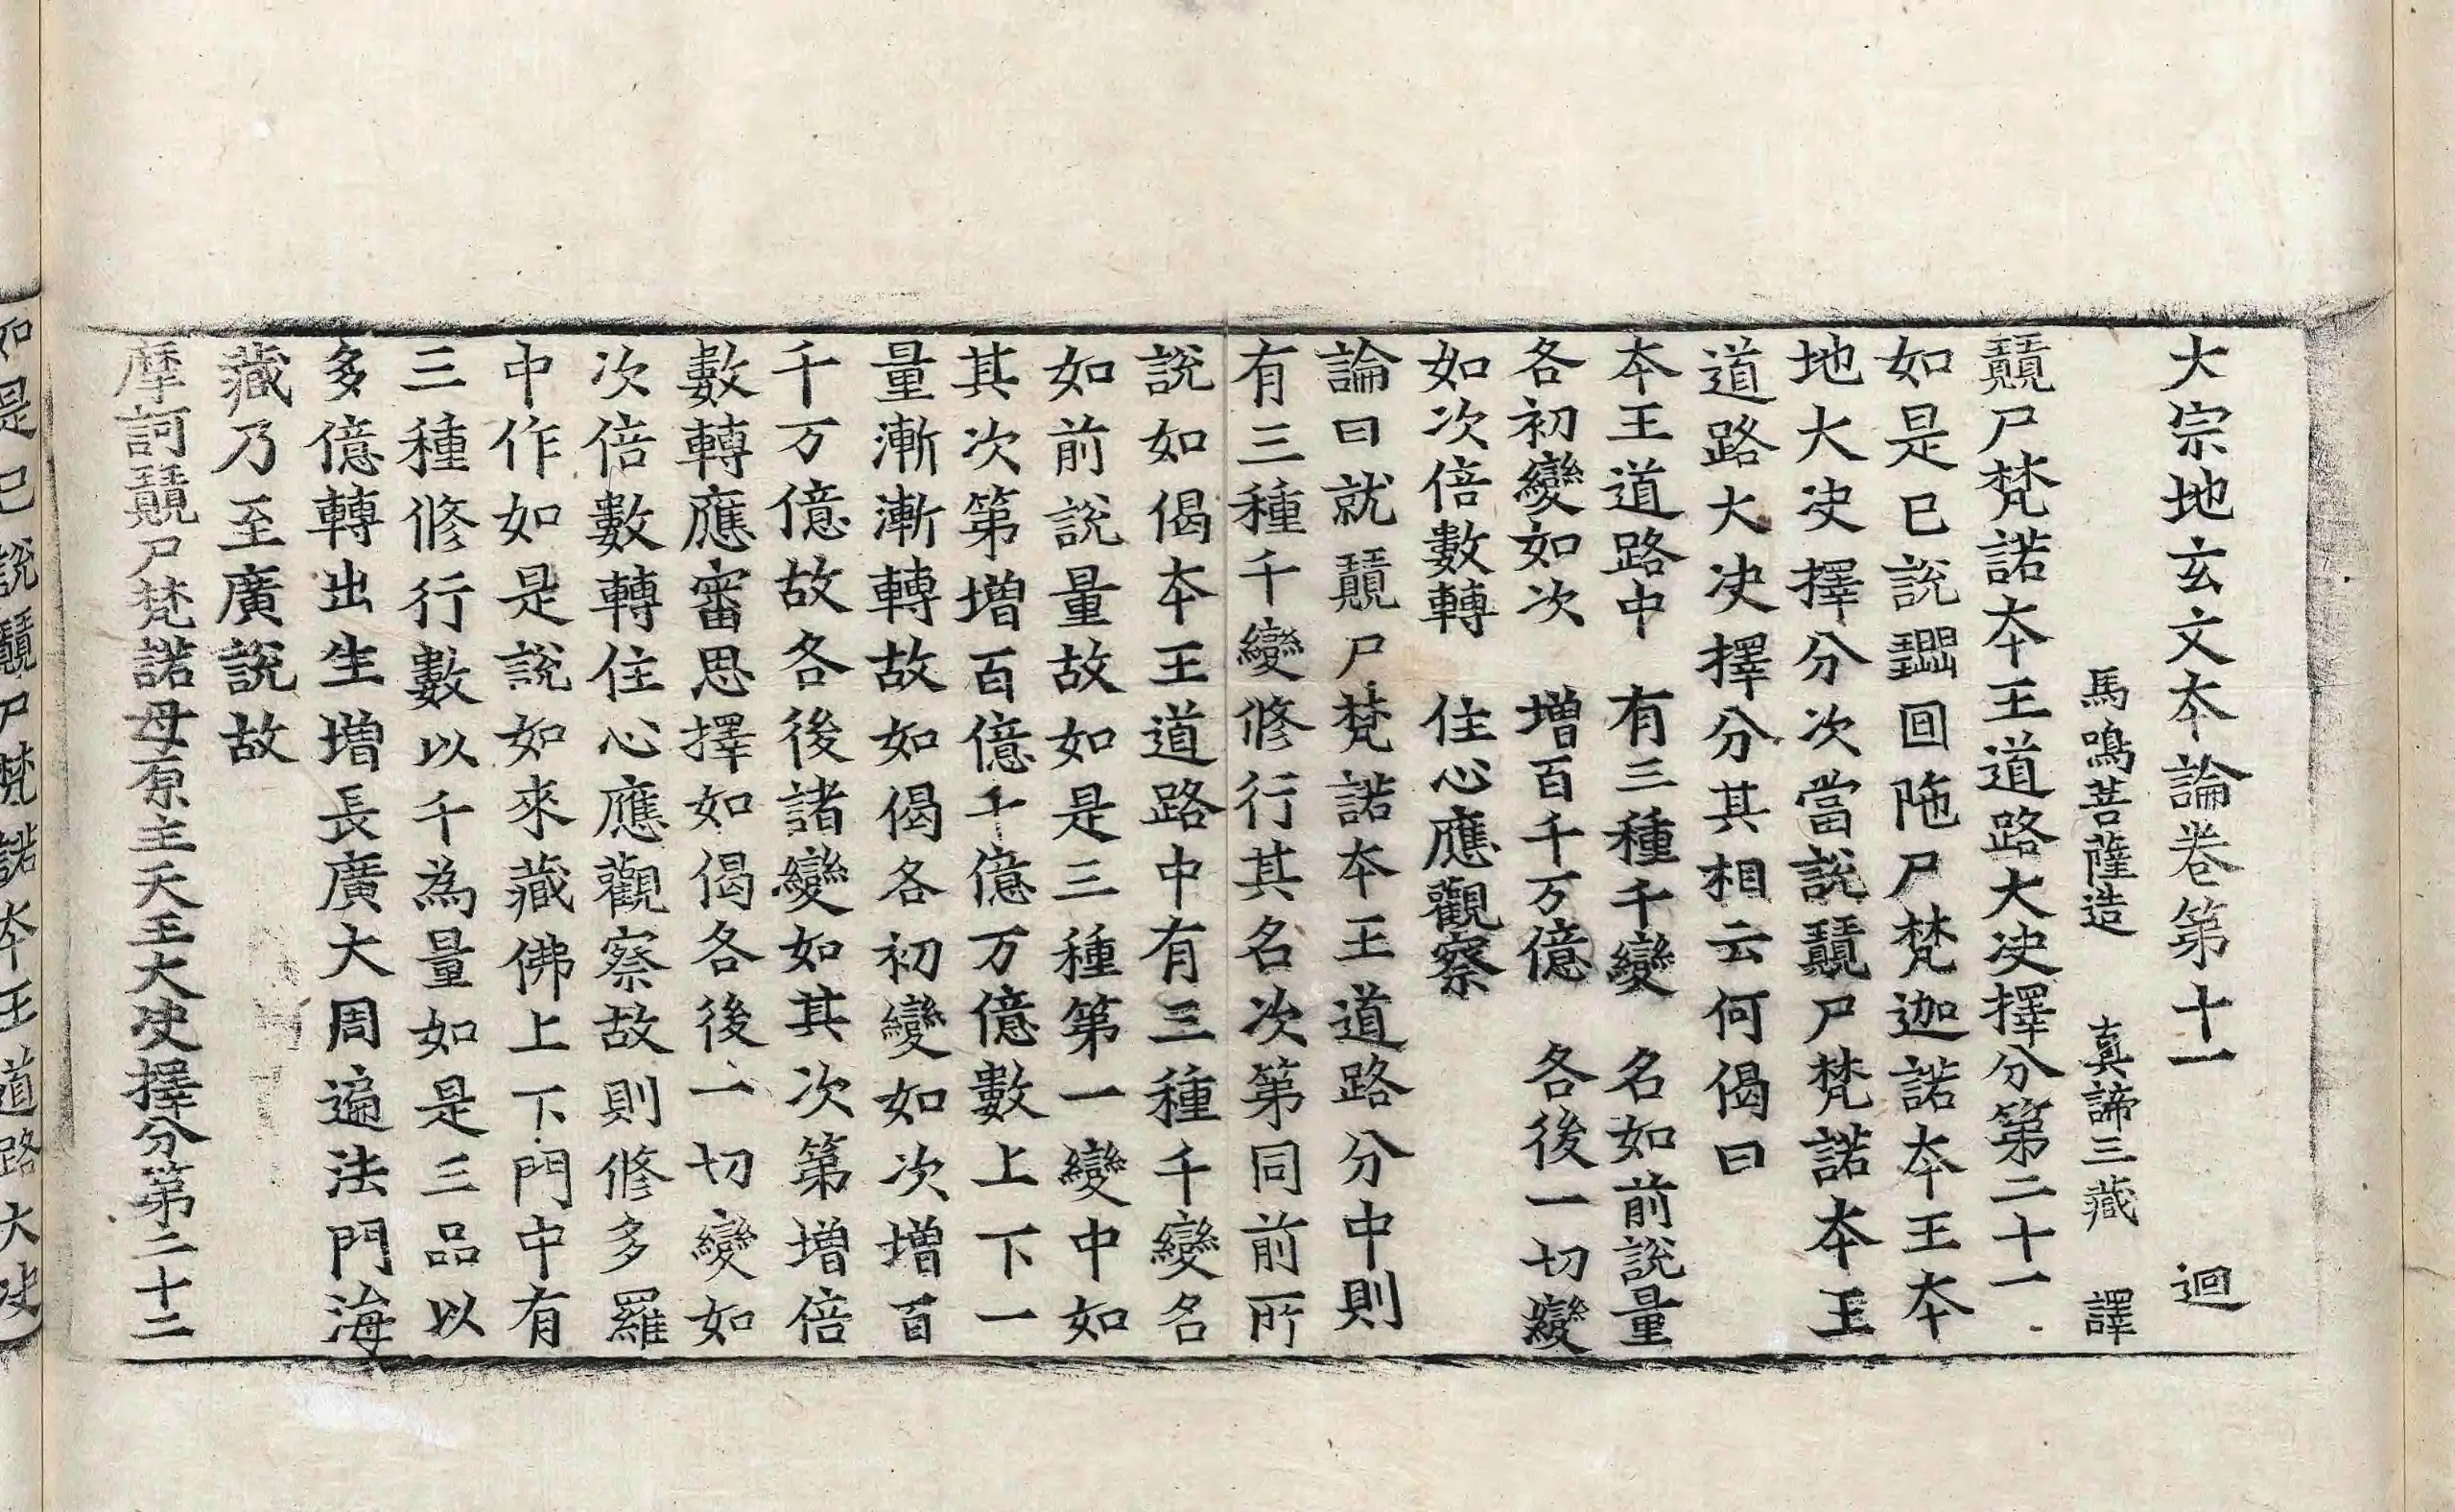 大宗地玄文夲論卷第十一　迴
馬鳴菩薩造　真諦三藏　譯
尸梵諾夲王道路大决擇分第二十一
如是已說回陁尸梵迦諾夲王夲
地大决擇分次當說尸梵諾夲王
道路大决擇分其相云何偈曰
夲王道路中　有三種千變　名如前說量
各初變如次　增百千万億　各後一切變
如次倍數轉　住心應觀察
論曰就尸梵諾夲王道路分中則
有三種千變修行其名次第同前所
說如偈夲王道路中有三種千變名
如前說量故如是三種第一變中如
其次第增百億千億万億數上下一
量漸漸轉故如偈各初變如次增百
千万億故各後諸變如其次第增倍
數轉應審思擇如偈各後一切變如
次倍數轉住心應觀察故則修多羅
中作如是說如來藏佛上下門中有
三種修行數以千為量如是三品以
多億轉出生增長廣大周遍法門海
藏乃至廣說故
摩訶尸梵諾母原主天王大决擇分第二十二
如是已說尸梵諾夲王道路大决